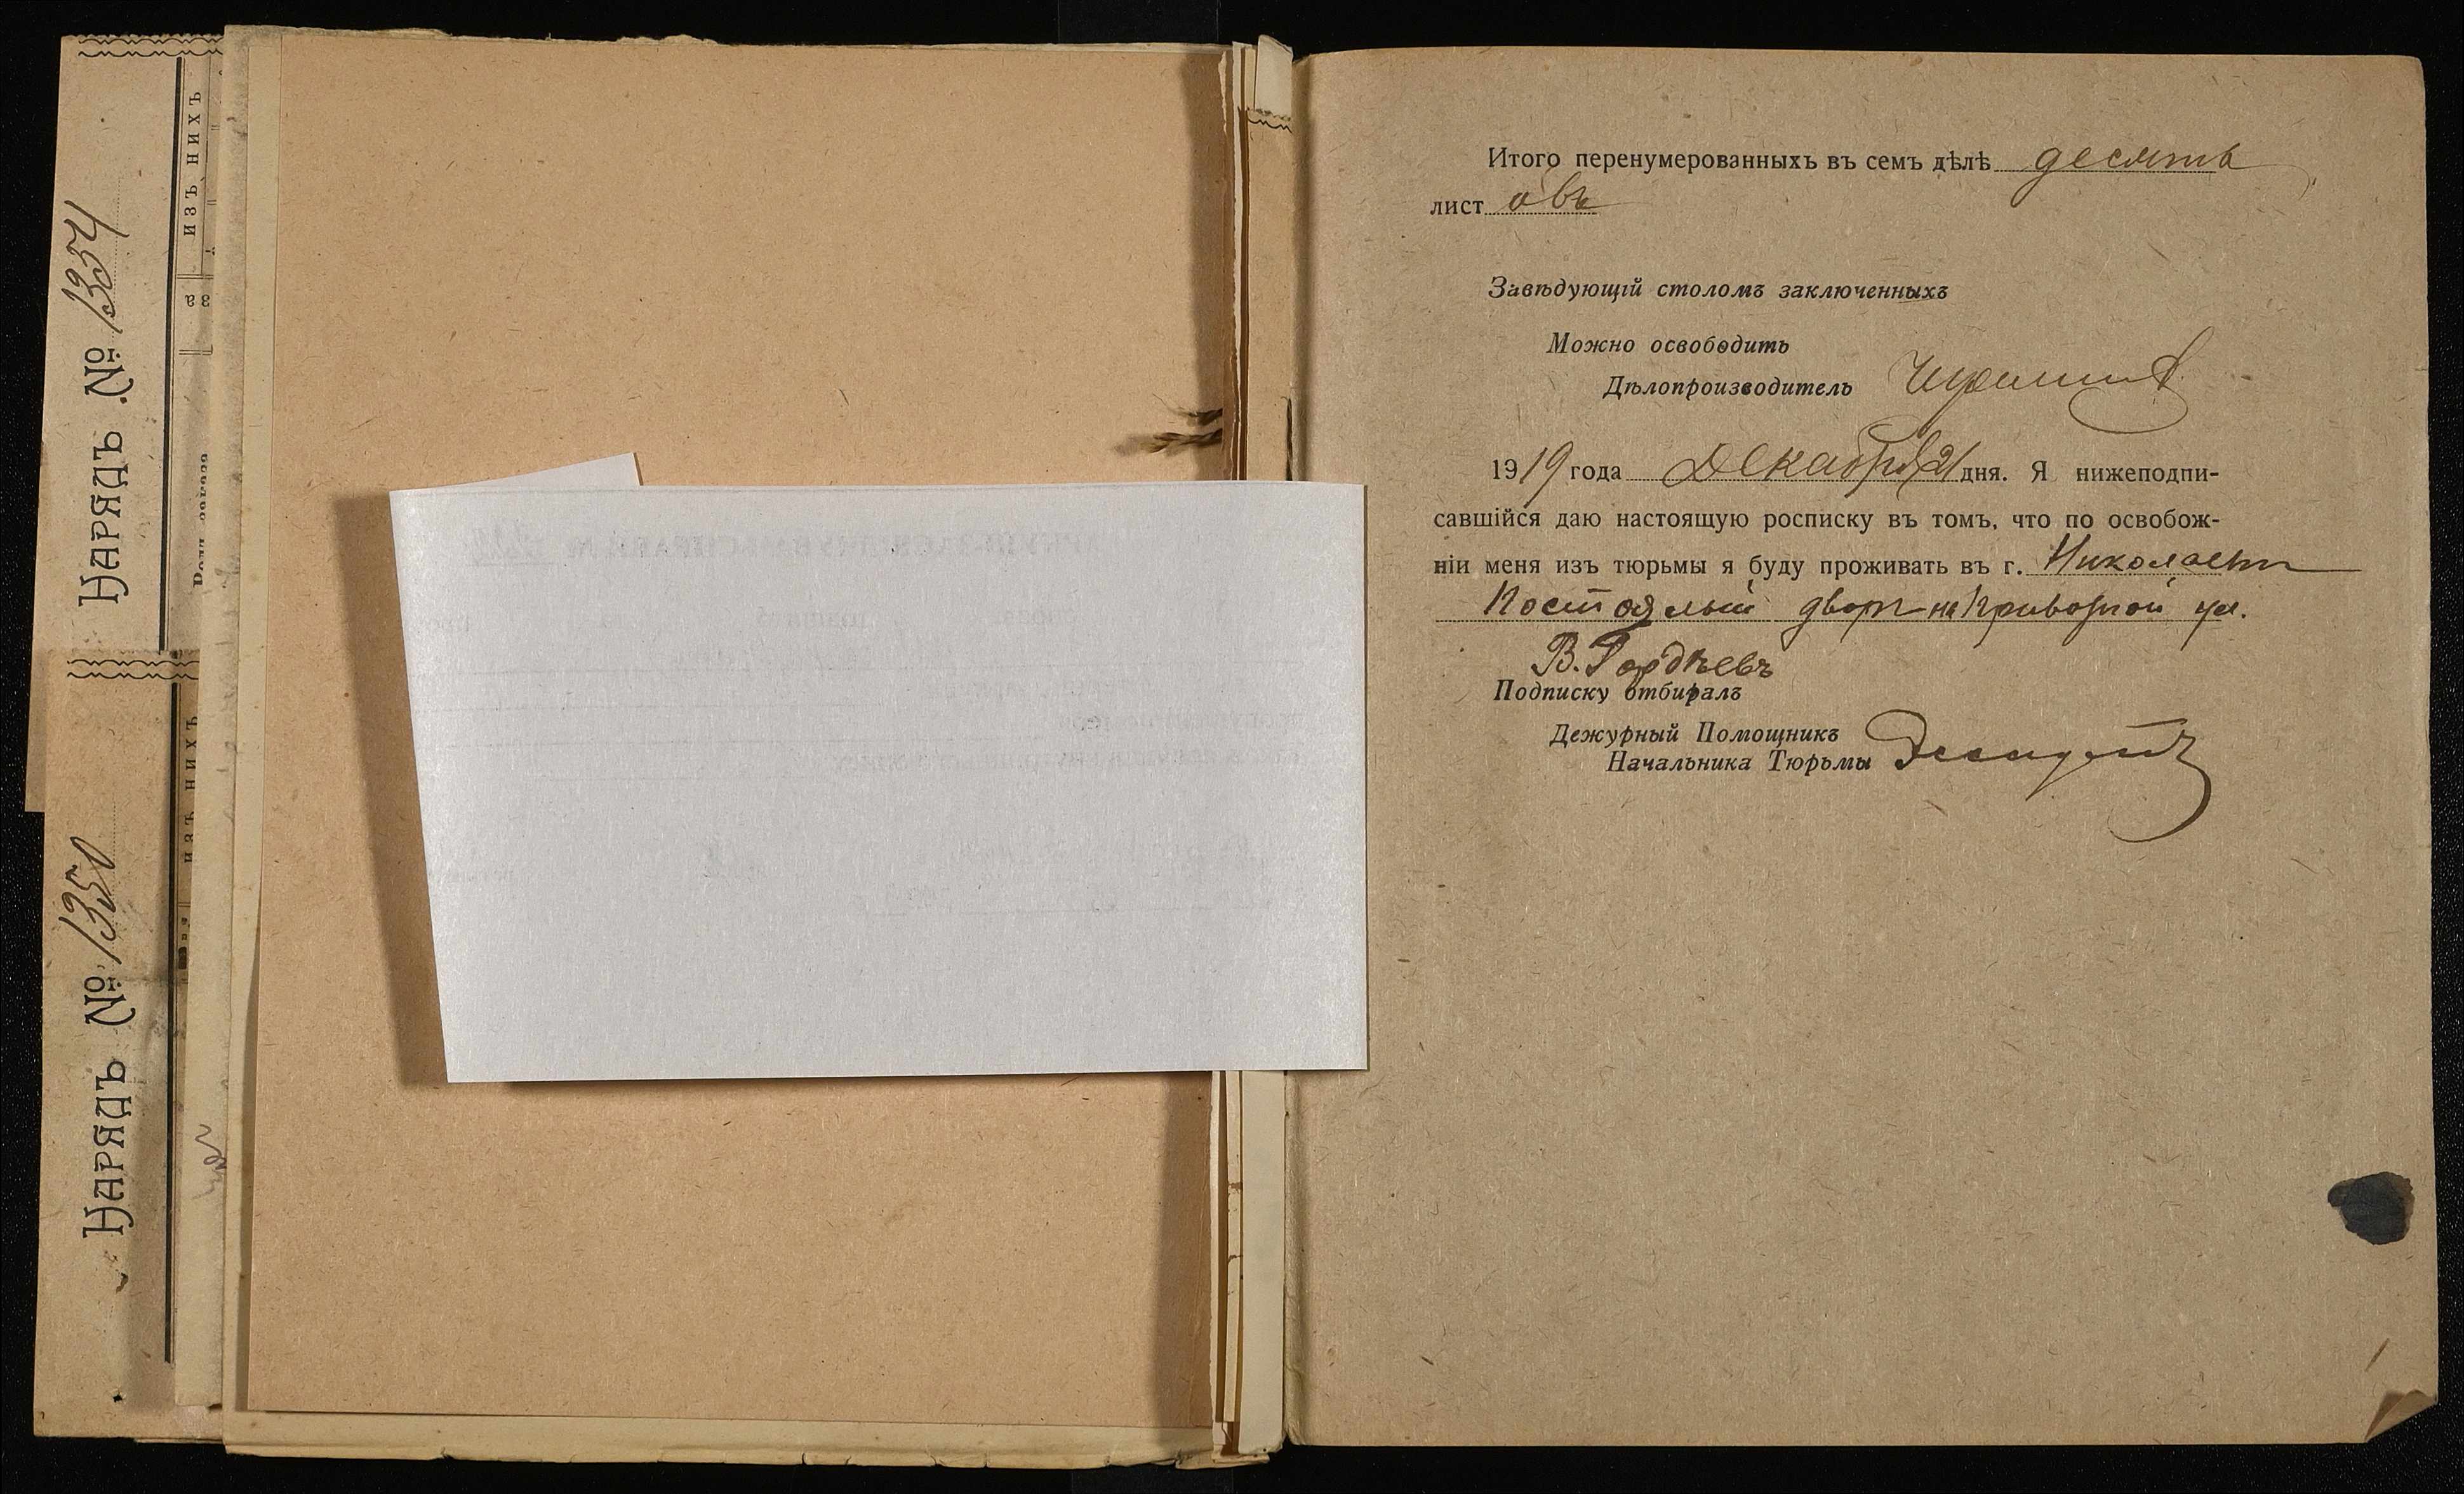 НАРЯДЪ № 1354
ИЗЪ НИХЪ
НАРЯДЪ № 1350
ИЗЪ НИХЪ
Итого перенумерованныхъ въ семъ дѣлѣ десять
лист овъ
Завѣдующій столомъ заключенныхъ
Можно освободить
Дѣлопроизводитель
1919 года Декабря 21 дня. Я нижеподпи-
савшійся даю настоящую росписку въ томъ, что по освобож-
ніи меня изъ тюрьмы я буду проживать въ г. Николаевѣ
Постоялый дворъ на Привозной ул.
В. Гордѣевъ
Подписку отбиралъ
Дежурный Помощникъ
Начальника Тюрьмы